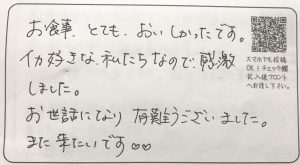 お食事、とても、おいしかったです。
イカ好きな私たちなので感激
しました。
お世話になり有難うございました。
また来たいです♡♡
スマホでも投稿
OK!チェック欄
記入後フロント
へお渡し下さい。